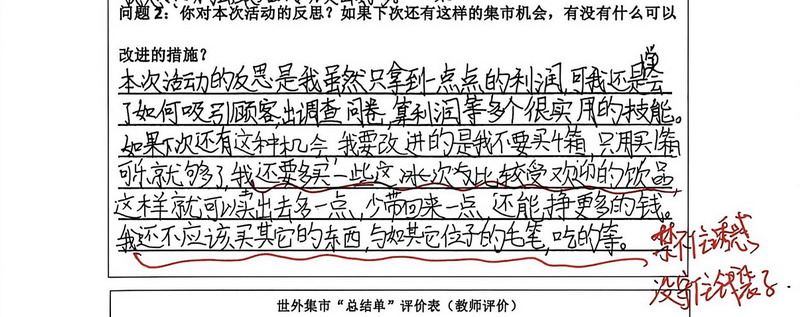 问题2：你对本次活动的反思？如果下次还有这样的集市机会，有没有什么可以
改进的措施？
本次活动的反思是我虽然只拿到一点点的利润，可我还是学会
了如何吸引顾客，出调查问卷，算利润等多个很实用的技能。
如果下次还有这种机会，我要改进的是我不要买4箱，只用买1箱
可乐就够了，我还要多买一些这次比较受欢迎的饮品，
这样就可以卖出去多一点，少带回来一点，还能挣更多的钱。
我还不应该买其它的东西，如其它位子的毛笔，吃的等。
禁不住诱惑
没守住钱袋子.
世外集市“总结单”评价表（教师评价）